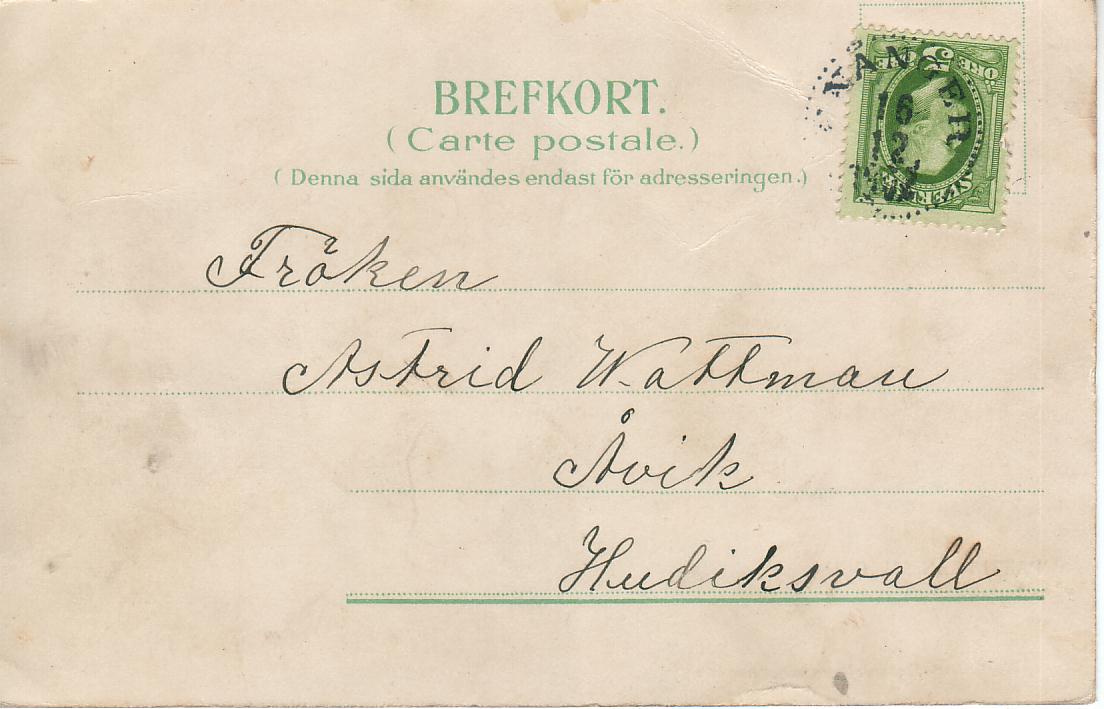 BREFKORT.
(Carte postale.)
(Denna sida användes endast för adresseringen.)
5 ÖRE
16
12
Fröken
Astrid Wattman
Åvik
Hudiksvall